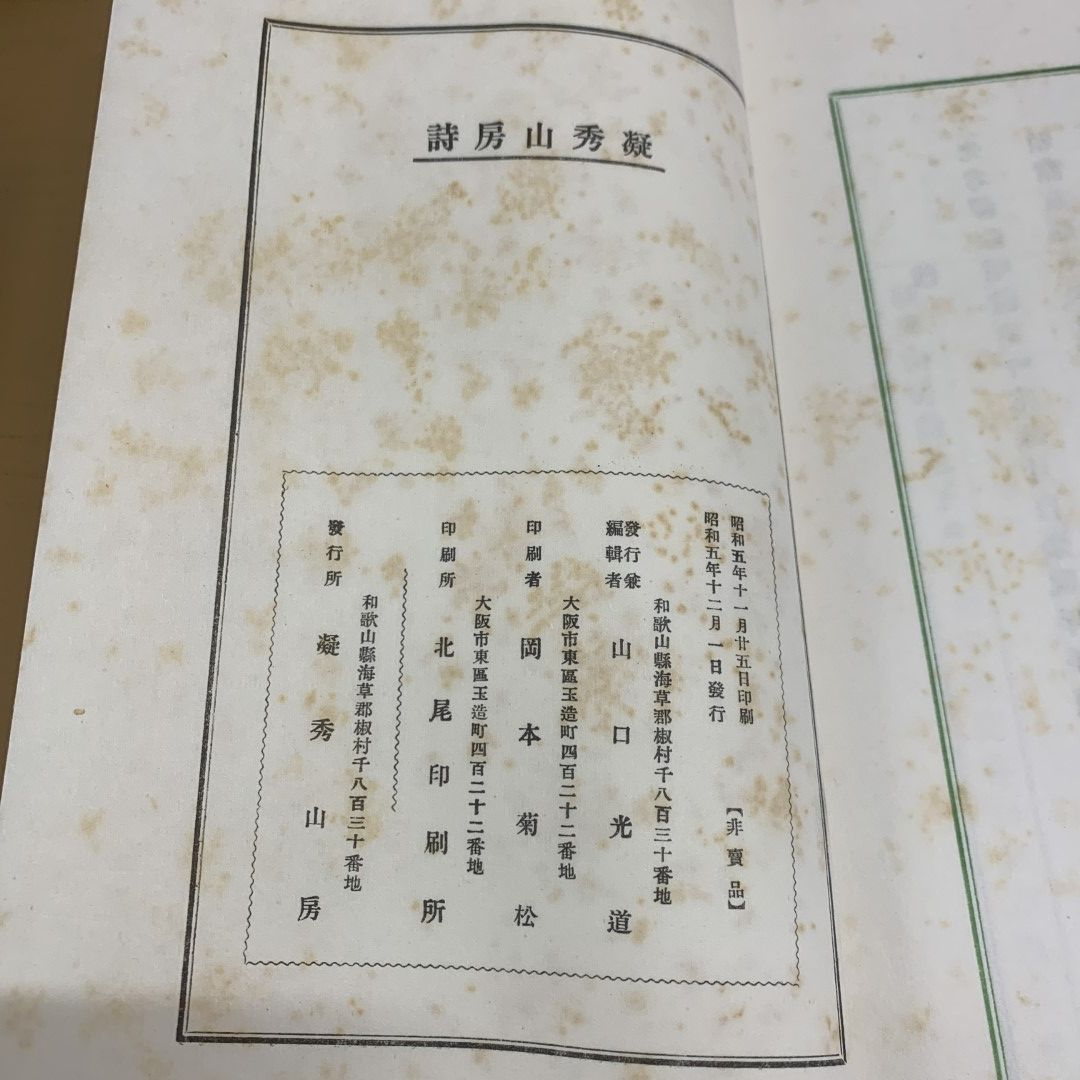 凝秀山房詩
昭和五年十一月廿五日印刷
昭和五年十二月一日發行
【非賣品】
和歌山縣海草郡椒村千八百三十番地
發行兼
編輯者
山口光道
大阪市東區玉造町四百二十二番地
印刷者
岡本菊松
大阪市東區玉造町四百二十二番地
印刷所
北尾印刷所
和歌山縣海草郡椒村千八百三十番地
發行所
凝秀山房